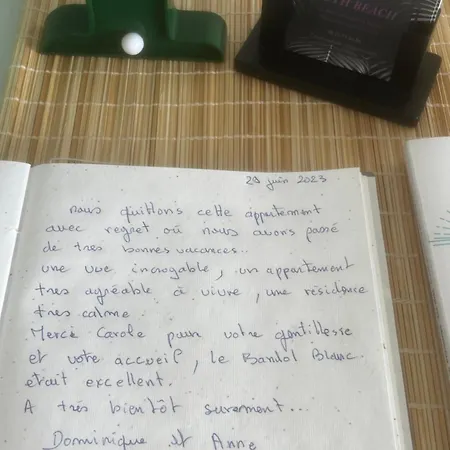 TH BEACH
29 juin 2023
nous quittons cette appartement
avec regret où nous avons passé
de très bonnes vacances..
une vue incroyable, un appartement
très agréable à vivre, une résidence
très calme.
Merci Carole pour votre gentillesse
et votre accueil, le Bandol Blanc.
était excellent.
A très bientôt surement...
Dominique et Anne